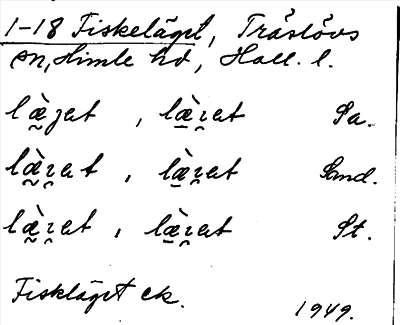 1-18 Fiskeläget, Träslövs
sn, Himle hd, Hall. l.
læ̰̀ʒat , læ̱̀ɪ̯at Sa.
læ̰̀ɪ̯at , læ̱̀ɪ̯at Sand.
læ̰̀ɪ̯at , læ̱̀ɪ̯at St.
Fiskläget ek.
1949.